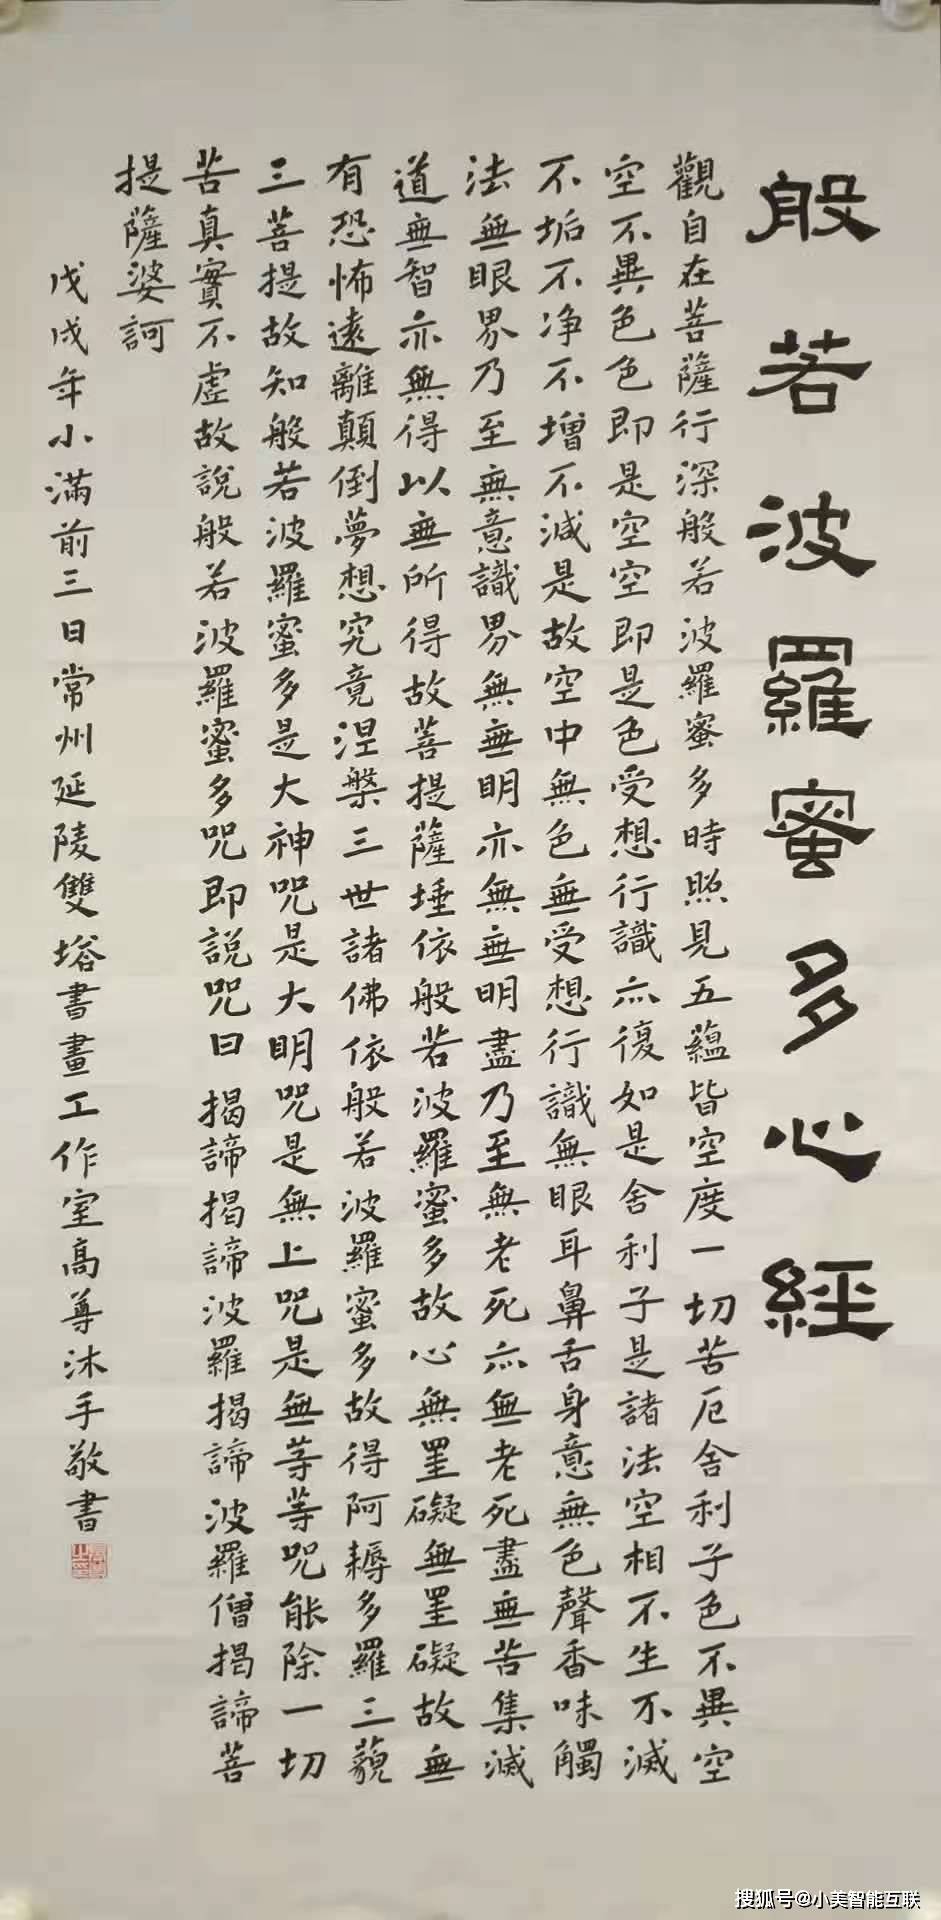 般若波羅蜜多心經
觀自在菩薩行深般若波羅蜜多時照見五蘊皆空度一切苦厄舍利子色不異空
空不異色色即是空空即是色受想行識亦復如是舍利子是諸法空相不生不滅
不垢不净不增不減是故空中無色無受想行識無眼耳鼻舌身意無色聲香味觸
法無眼界乃至無意識界無無明亦無無明盡乃至無老死亦無老死盡無苦集滅
道無智亦無得以無所得故菩提薩埵依般若波羅蜜多故心無罣礙無罣礙故無
有恐怖遠離顛倒夢想究竟涅槃三世諸佛依般若波羅蜜多故得阿耨多羅三藐
三菩提故知般若波羅蜜多是大神咒是大明咒是無上咒是無等等咒能除一切
苦真實不虛故說般若波羅蜜多咒即說咒曰 揭諦揭諦波羅揭諦波羅僧揭諦菩
提薩婆訶
戊戌年小滿前三日常州延陵雙塔書畫工作室高尊沐手敬書
搜狐号@小美智能互联